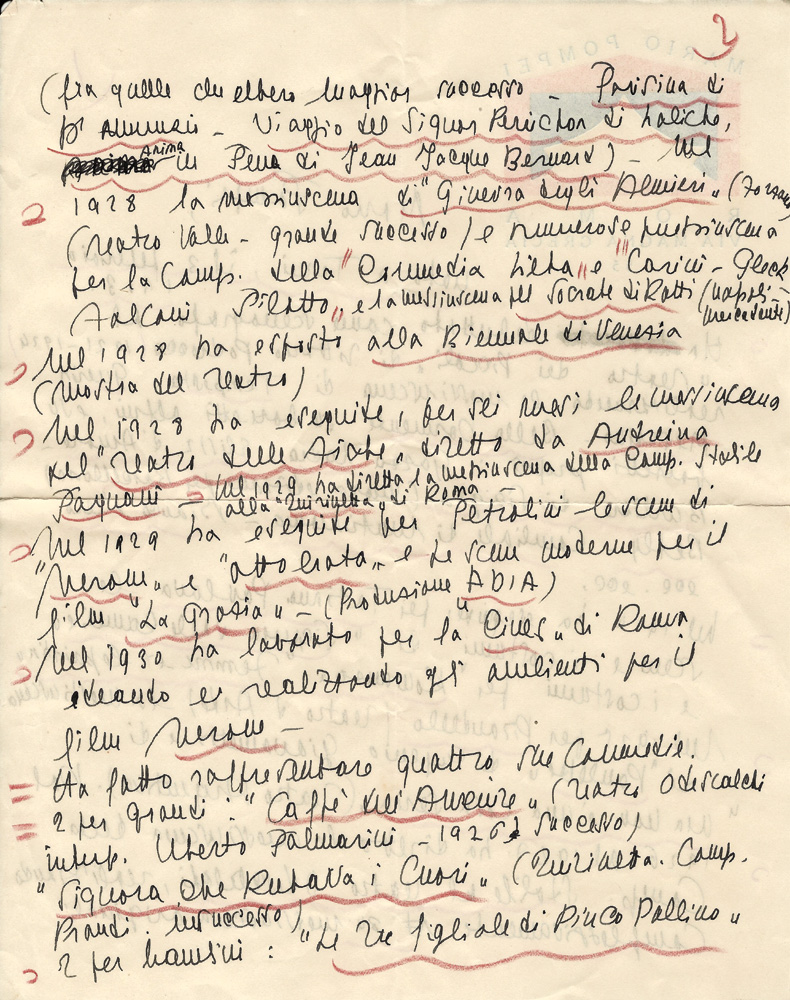 2
MARIO POMPEI
(fra quelle che ebbero maggior successo – Parisina di
D'Annunzio – Viaggio del Signor Perichon di Labiche,
Anima
in Pena di Jean Jacque Bernard) – Nel
1928 la messinscena di "Ginevra degli Almieri" (Forzano)
(Teatro Valle – grande successo) e numerose messinscena
per la Camp. della "Commedia Lieta" e "Carini – Gleck
Falconi Pilotto" e la messinscena del Socrate di Ratti (Napoli –
Mercadante)
Nel 1928 ha esposto alla Biennale di Venezia
(Mostra del Teatro)
Nel 1928 ha eseguite, per sei mesi le messinscena
nel "Teatro delle Arti" diretto da Andreina
Pagnani – Nel 1929 ha diretta la messinscena della Comp. Stabile
alla "Quirinetta" di Roma –
Nel 1929 ha eseguite per Petrolini le scene di
"Nerone" e "Medico" e le scene moderne per il
film "La Grazia" – (Produzione ADIA)
Nel 1930 ha lavorato per la "Cines" di Roma
ideando e realizzando gli ambienti per il
film Nerone –
Ha fatto rappresentare quattro sue Commedie.
2 per grandi: "Caffè dell'Avvenire" (Teatro Odescalchi
interp. Uberto Palmarini – 1926 successo)
"Signora che Rubava i Cuori" (Quirinetta. Comp.
Prandi. insuccesso)
2 per bambini: "Le Tre figliole di Pinco Pallino"